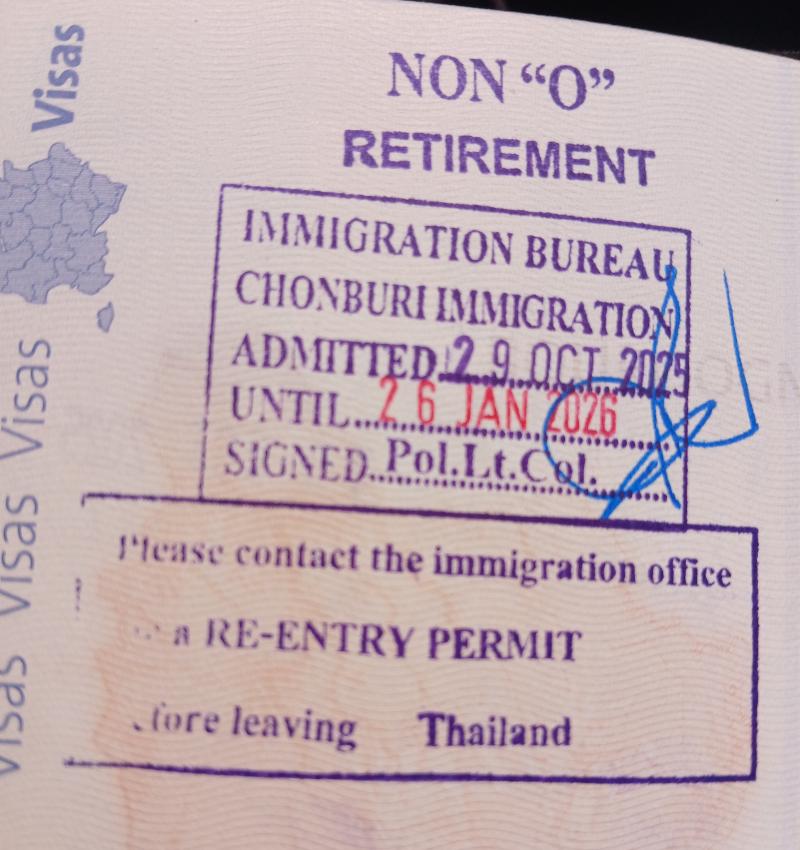 Visas
NON “O”
RETIREMENT
IMMIGRATION BUREAU
CHONBURI IMMIGRATION
ADMITTED 29 OCT 2025
UNTIL 26 JAN 2026
SIGNED Pol.Lt.Col.
Please contact the immigration office
a RE-ENTRY PERMIT
fore leaving Thailand
Visas
Visas
Visas